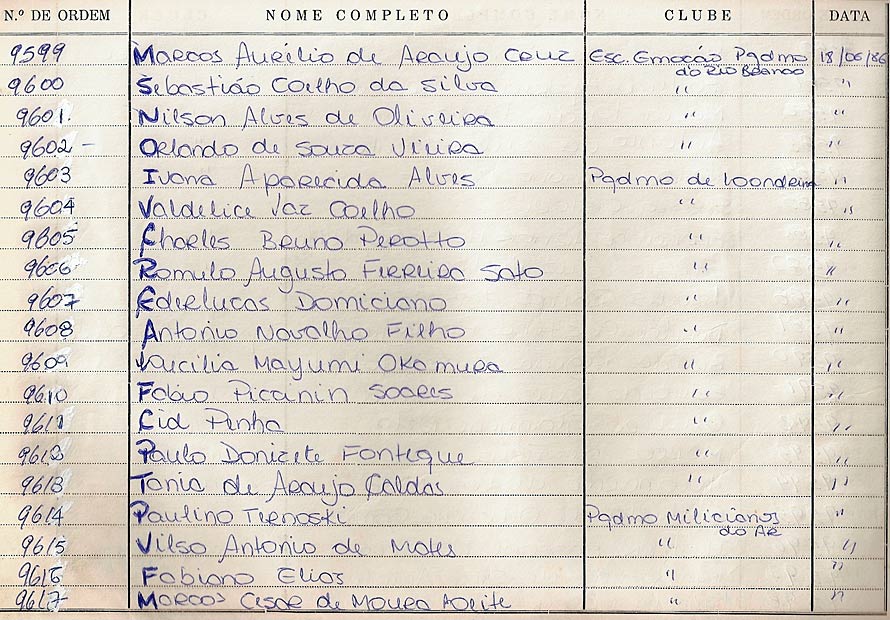 N.º DE ORDEM NOME COMPLETO CLUBE DATA
9599 Marcos Aurélio de Araujo Cruz Esc. Emoção Pqdmo 18/06/86
do Rio Branco
9600 Sebastião Coelho da Silva '' ''
9601. Nilson Alves de Oliveira '' ''
9602 - Orlando de Souza Vieira '' ''
9603 Ivana Aparecida Alves Pqdmo de Loondrina ''
9604 Valdelice Vaz Coelho '' ''
9605 Charles Bruno Perotto '' ''
9606 Romulo Augusto Ferreira Sato '' ''
9607 Ederlucas Domiciano '' ''
9608 Antonio Navalho Filho '' ''
9609 Lucilia Mayumi Okamura '' ''
9610 Fabio Picinin Soares '' ''
9611 Cid Penha '' ''
9612 Paulo Donizete Fonteque '' ''
9613 Tania de Araujo Caldas '' ''
9614 Paulino Ternoski Pqdmo Milicianos ''
do AR
9615 Vilso Antonio de '' ''
9616 Fabiano Elias '' ''
9617 Marcos Cesar de Moura '' ''